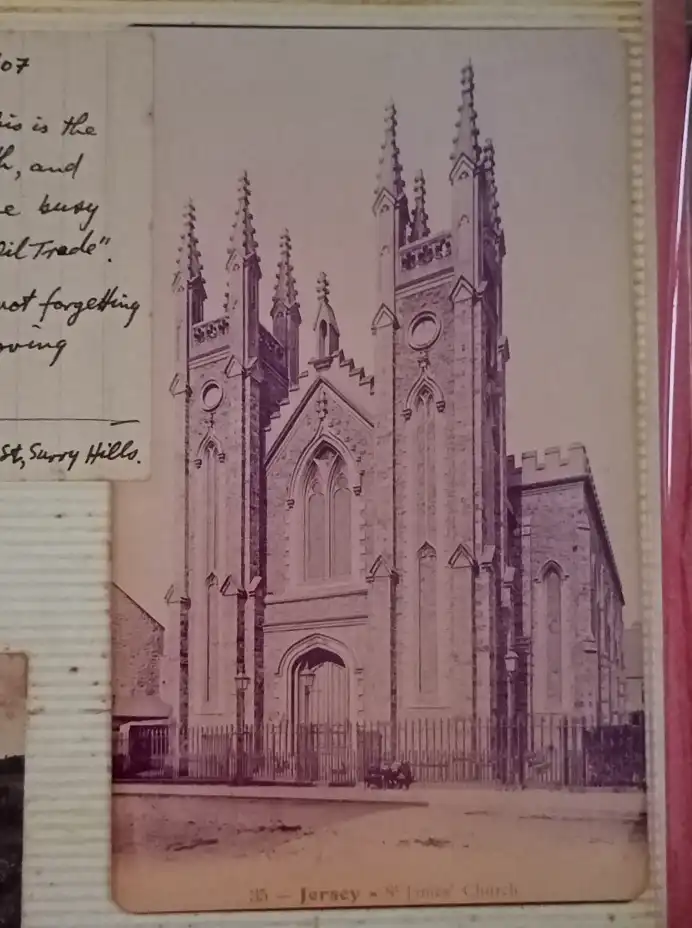 07
is is the
h, and
e busy
Oil Trade".
not forgetting
oving
St, Surry Hills.
35 – Jersey - St James' Church